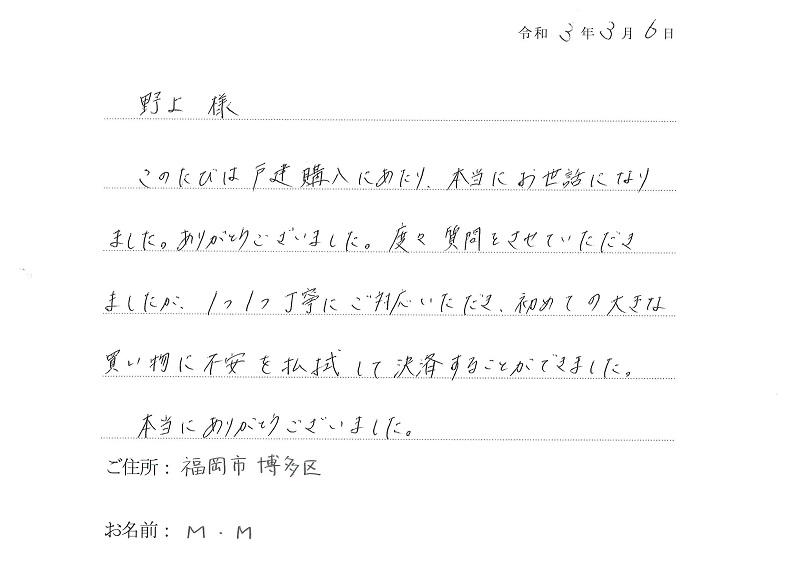 令和 3 年 3 月 6 日
野上 様
このたびは戸建購入にあたり、本当にお世話になり
ました。ありがとうございました。度々質問をさせていただき
ましたが、1つ1つ丁寧にご対応いただき、初めての大きな
買い物に不安を払拭して決済することができました。
本当にありがとうございました。
ご住所：福岡市 博多区
お名前：M．M